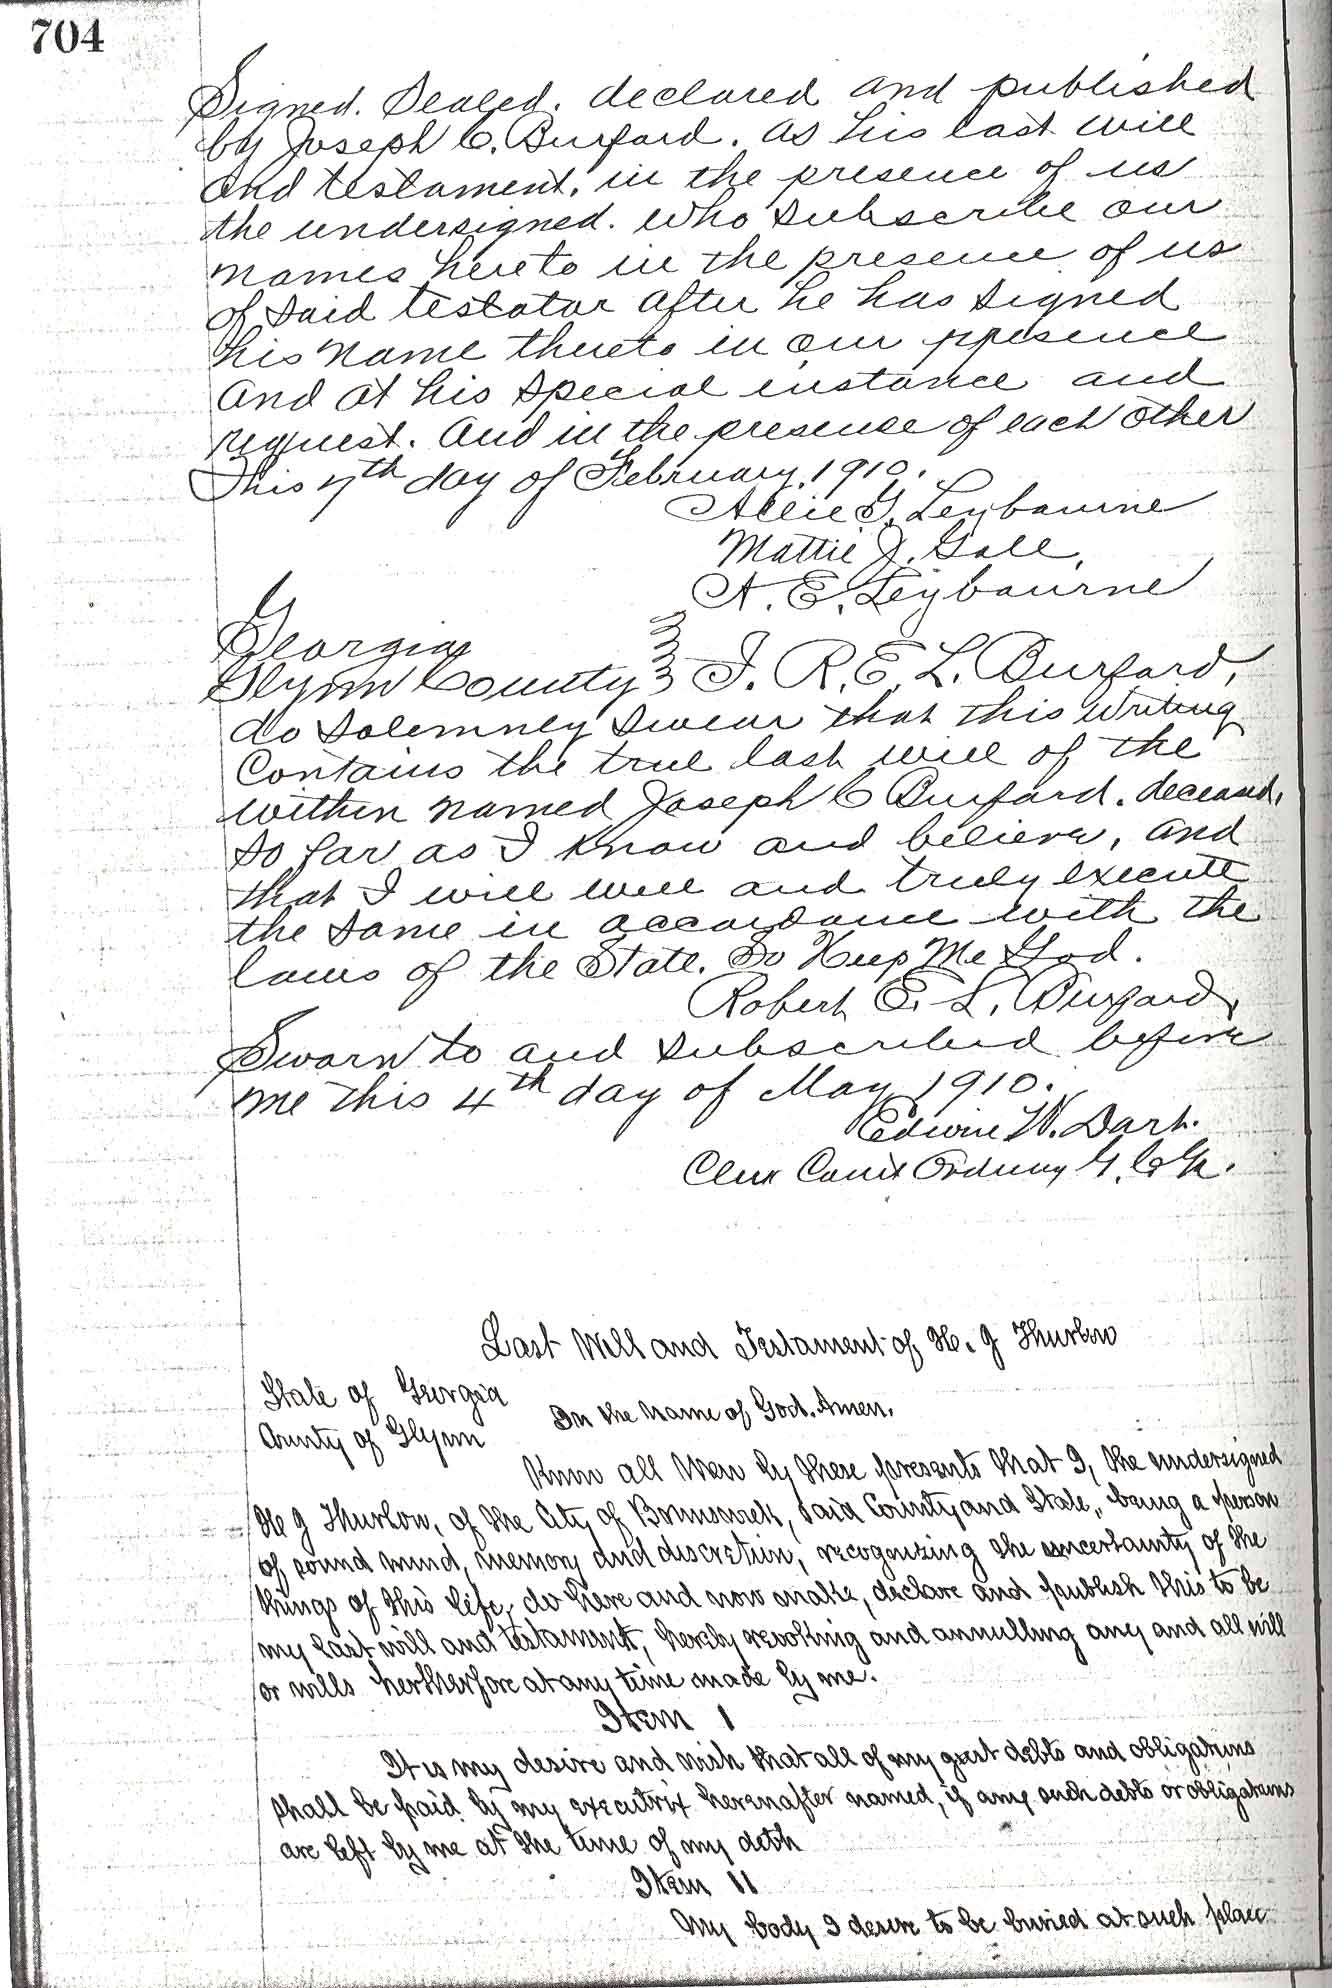 704
Signed. Sealed. declared and published
by Joseph C. Burford. as his last will
and testament. in the presence of us
the undersigned. who subscribe our
names hereto in the presence of us
of said testator after he has signed
his name thereto in our presence
and at his special instance and
request. And in the presence of each other
This 7th day of February. 1910.
Allie G. Leybourne
Mattie J. Gale.
A. E. Leybourne
Georgia
Glynn County I. R. E. L. Burford,
do solemnly swear that this writing
Contains the true last will of the
within named Joseph C Burford. deceased,
so far as I know and believe, and
that I will well and truly execute
the same in accordance with the
laws of the State. So Help Me God.
Robert E. L. Burford,
Sworn to and subscribed before
me this 4th day of May 1910.
Edwin W. Dart.
Clerk Court Ordinary G. C. Ga.
Last Will and Testament of H. J Thurlow
State of Georgia
County of Glynn In the name of God. Amen.
Know all Men by these presents that I, the undersigned
H J Thurlow, of the City of Brunswick, said County and State, being a person
of sound mind, memory and discretion, recognizing the uncertainty of the
things of this life, do here and now make, declare and publish this to be
my last will and testament, hereby revoking and annulling any and all will
or wills hertherfore at any time made by me.
Item I
It is my desire and wish that all of my just debts and obligations
shall be paid by my executrix hereinafter named, if any such debts or obligations
are left by me at the time of my deth
Item II
My body I desire to be buried at such place